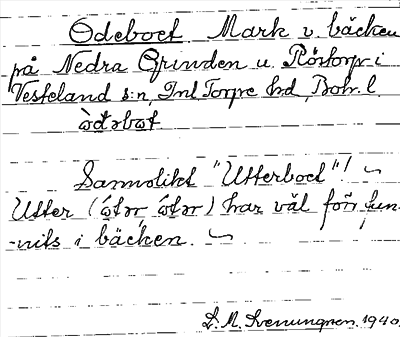 Odeboet Mark v. bäcken
på Nedra Grinden u. Röstorp i
Vesteland s:n, Inl Torpe hd, Boh. l.
Sannolikt "Utterboet"!
Utter ( ) har väl förr fun-
-nits i bäcken.
S. M. Svenungson. 1940